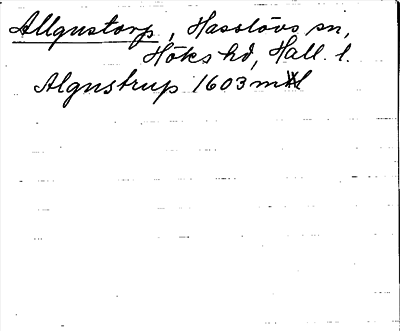 Allgustorp, Hasslövs sn,
Höks hd, Hall. l.
Algustrup 1603